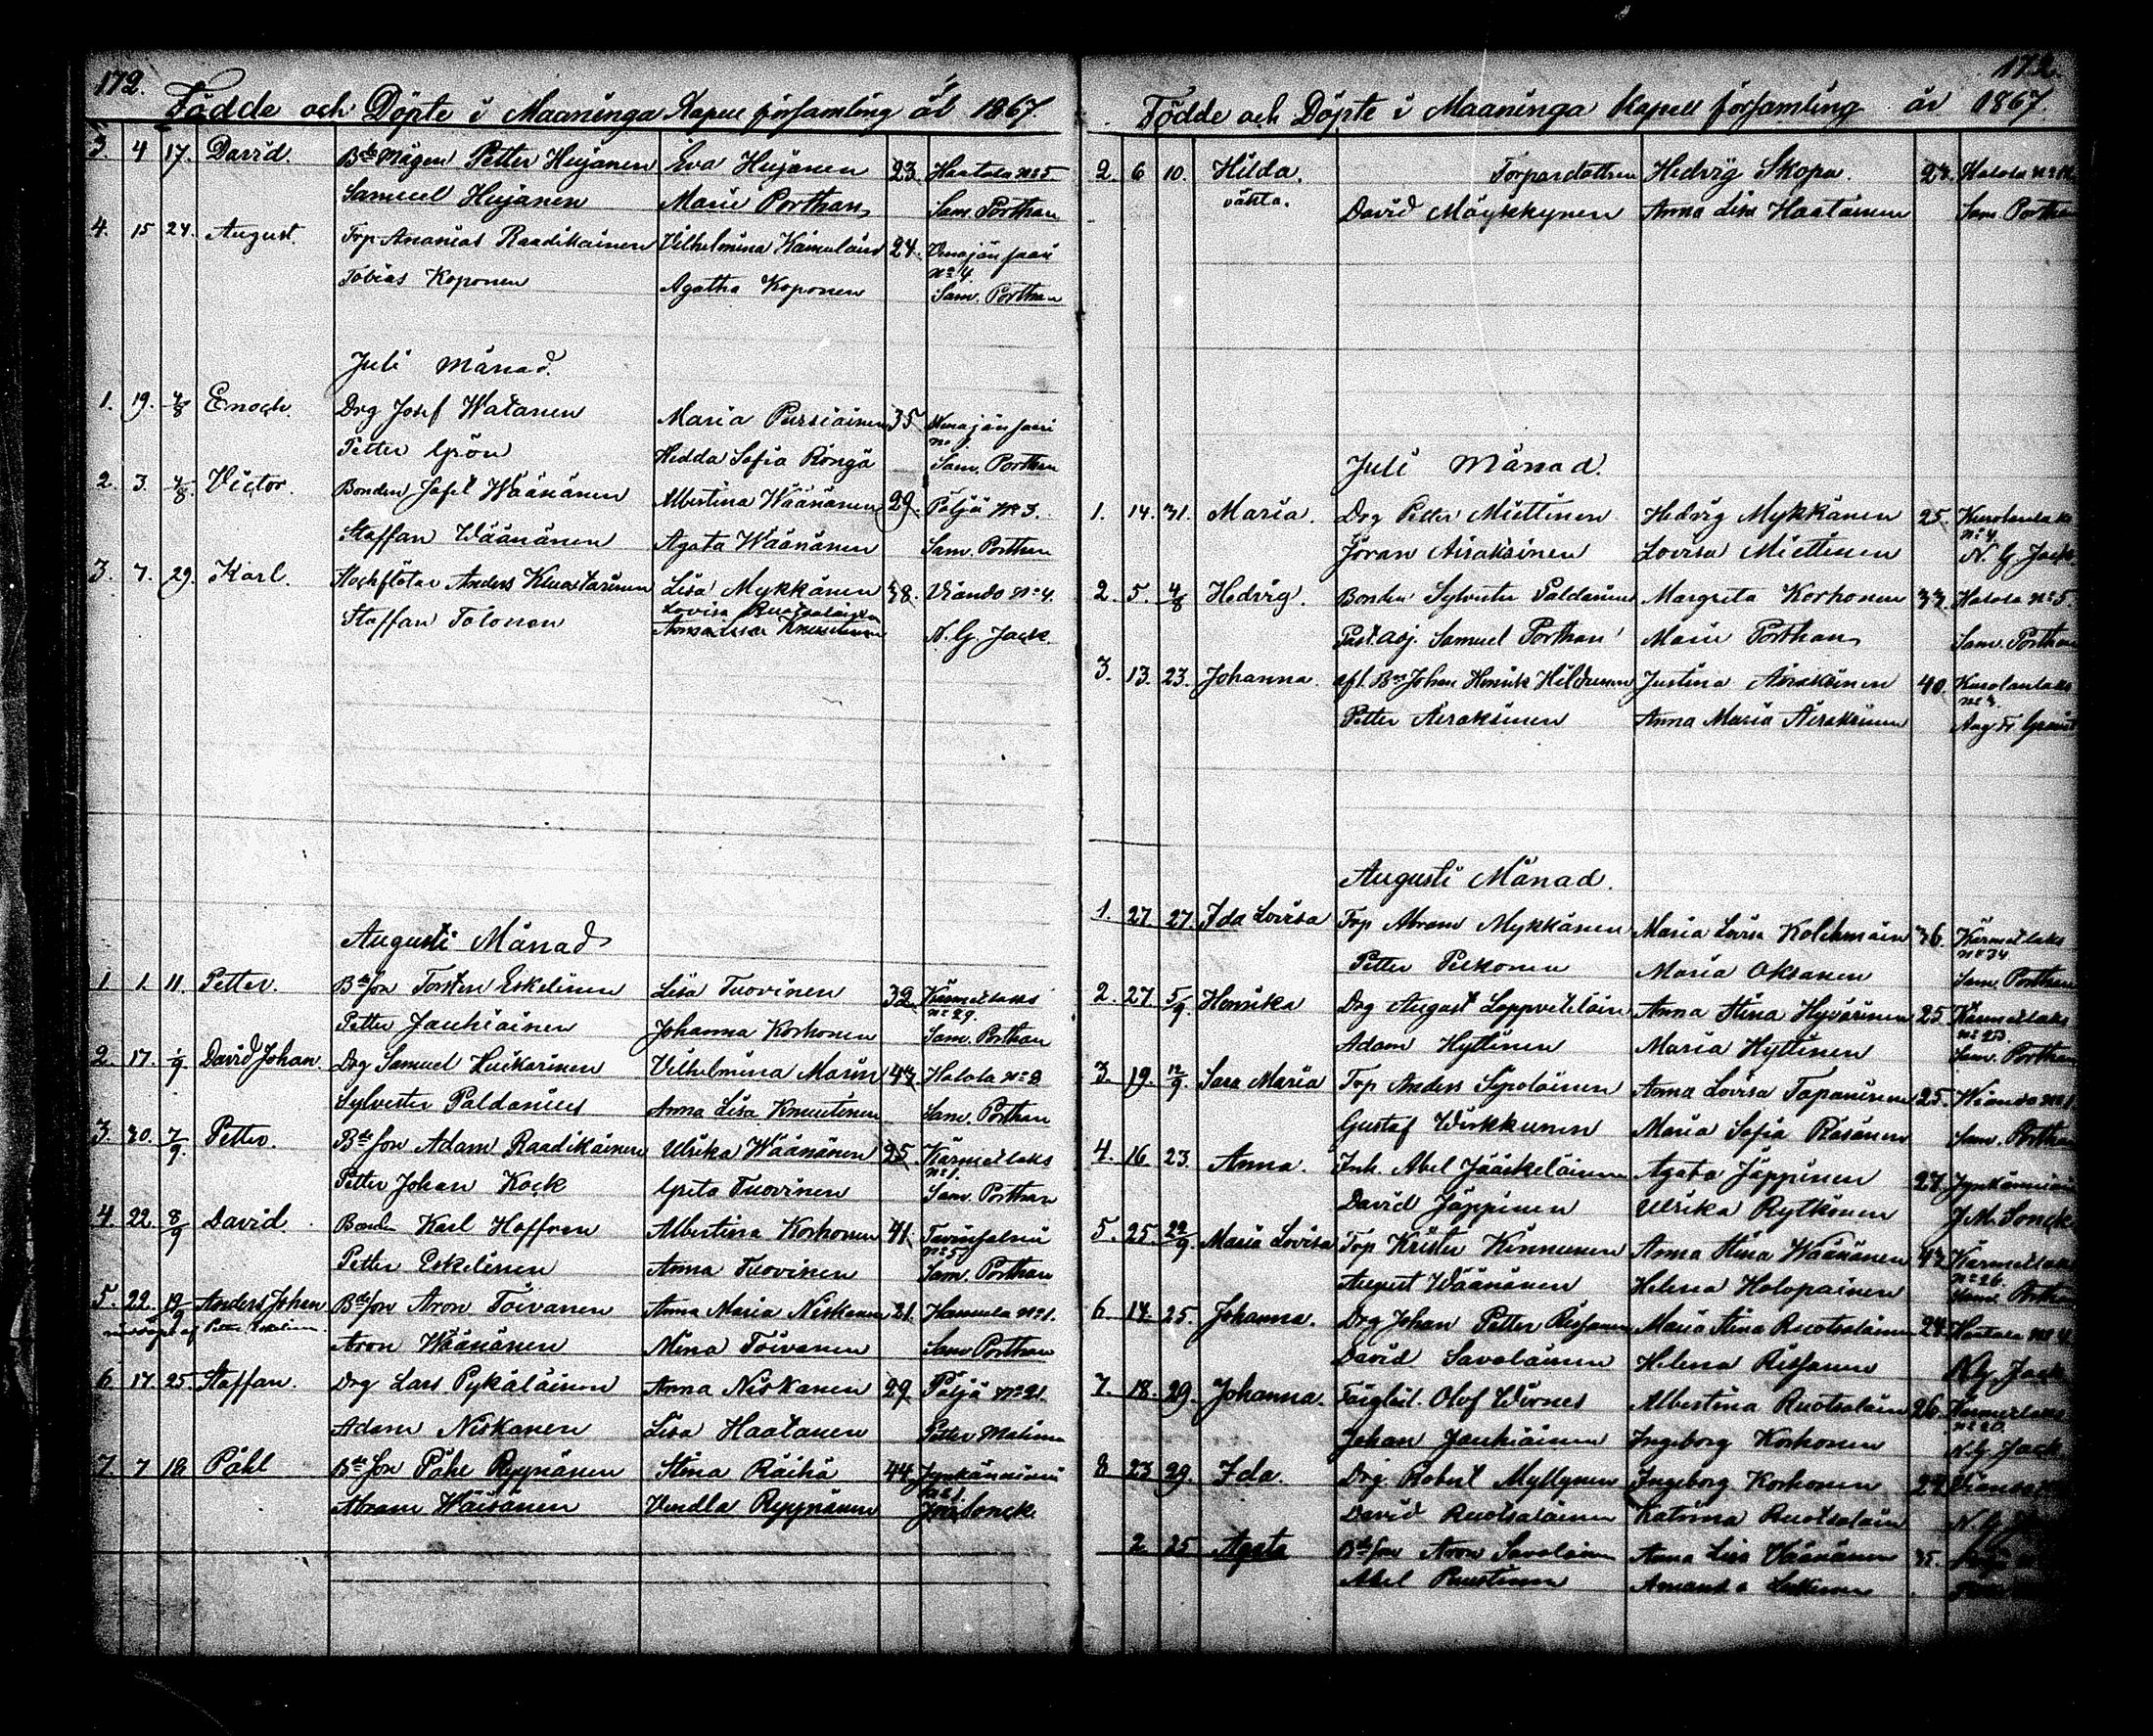 172.
Födde och Döpte i Maaninga Kapell församling år 1867.
3. 4 17. David. Bdemågen Petter Hujanen Eva Hujanen 23. Haatala No 5
Samuel Hujanen Marie Porthan Sam. Porthan
4. 15 24. August. Trp Ananias Raadikainen Vilhelmina 24.
No 4
Tobias Koponen Agatha Koponen Sam. Porthan
Juli Månad.
1. 19. 4/8 Enoch. Drg Josef Watanen Maria Pursiainen 35
Petter Grön Hedda Sofia Rongä Sam. Porthan
2. 3. 4/8 Victor. Bonden Wäänänen Albertina Wäänänen 29. Pöljä No 3.
Staffan Wäänänen Agata Wäänänen Sam. Porthan
3. 7. 29. Karl. Anders Lisa Mykkänen 38. Viando No 4.
Lovisa Ruotsalainen
Staffan Tolonen Anna Lisa Knuutinen N. G. Jack.
Augusti Månad
1 1. 11. Petter. Bdeson Torsten Eskelinen Lisa Tuovinen 32 Kärmellaks
No 29.
Petter Jauhiainen Johanna Korhonen Sam. Porthan
2. 17. 1/9 David Johan. Drg Samuel Vilhelmina Marin 43. Halola No 8
Sylvester Paldanius Anna Lisa Knuutinen Sam. Porthan
3. 30. 7/9 Petter. Bdeson Adam Raadikainen Ulrika Wäänänen 25. Kärmellaks
No 1.
Petter Johan Kock Greta Tuovinen Sam. Porthan
4. 22. 8/9 David. Karl Hoffren Albertina Korhonen 41.
Petter Eskelinen Anna Tuovinen Sam. Porthan
5. 22. Anders Johan Bdeson Aron Toivanen Anna Maria Niskanen 21. Hamula No 1.
nöddöpt af Petter Eskelinen.
Aron Wäänänen Mina Toivanen Sam Porthan
6. 17 25. Staffan. Drg Lars Pykäläinen Anna Niskanen 29 Pöljä No 21.
Adam Niskanen Lisa Haatanen Petter
7. 7 18 Påhl Bdeson Påhl Ryynänen Stina Räihä 44.
Abram Wäisänen Vendla Ryynänen Sonck.
172
Födde och Döpte i Maaninga Kapell församling år 1867.
2. 6 10. Hilda. Torpardottren Hedvig Skopa.
oäkta. David Möykkynen Anna Lisa Haatainen Sam. Porthan
Juli Månad.
1. 14. 31. Maria. Drg Petter Miettinen Hedvig Mykkänen 25.
No 4.
Jöran Airaksinen Lovisa Miettinen N. G. Jack.
2. 5. 4/8 Hedvig. Bonden Sylvester Paldanius Margreta Korhonen 33. Halola No 5.
Past. adj. Samuel Porthan Marie Porthan Sam. Porthan
3. 13. 23. Johanna. afl. Bn Johan Henrik Justina Airaksinen 40.
Petter Airaksinen Anna Maria Airaksinen
Augusti Månad.
1. 27 27. Ida Lovisa Trp Abram Mykkänen Maria Lovisa 36. Kärmellaks
No 34
Petter Pekonen Maria Oksanen Sam. Porthan
2. 27 5/9 Henrika Drg August Anna Stina Hyvärinen 25 Kärmellaks
Adam Hyttinen Maria Hyttinen Sam. Porthan
3. 19. 12/9. Sara Maria Trp Anders Anna Lovisa Tapaninen 25.
Gustaf Wirkkunen Maria Sofia Räsänen Sam. Porthan
4. 16 23. Anna. Inh. Abel Jääskeläinen Agata Jäppinen 27
David Jäppinen Ulrika Rytkönen J. M. Sonck
5. 25 22/9. Maria Lovisa Trp Krister Kinnunen Anna Stina Wäänänen 43 Kärmellaks
No 26.
August Wäänänen Helena Holopainen Sam. Porthan
6. 14. 25. Johanna. Drg Johan Petter Maria Stina Ruotsalainen 24.
David Savolainen Helena N. G. Jack
7. 18. 29. Johanna. Olof Albertina Ruotsalain 26. Kärmellaks
Johan Jauhiainen Ingeborg Korhonen N. G. Jack
8. 23 29. Ida. Drg. Robert Myllynen Ingeborg Korhonen
David Ruotsalainen Katrina Ruotsalain
2 25 Agata Bdeson Aron Savolainen Anna Lisa Wäänänen 35.
Abel Puustinen Amanda